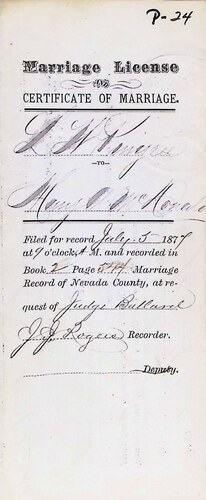 P-24
Marriage License
AND
CERTIFICATE OF MARRIAGE.
—TO—
Mary
Filed for record July 5 1877
at 9 o'clock, A M. and recorded in
Book 2 Page Marriage
Record of Nevada County, at re-
quest of Judge Ballard
J. J. Rogers Recorder.
Deputy.